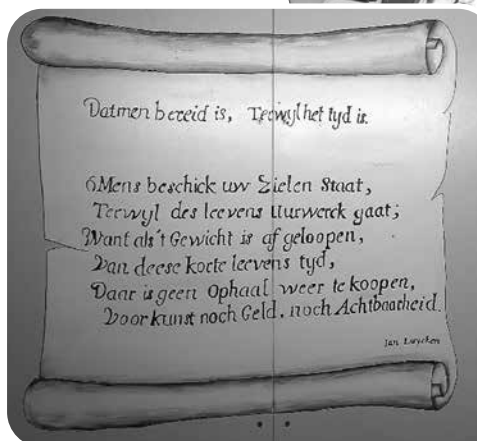 Datmen bereid is, Terwyl het tyd is.
O Mens beschick uw Zielen Staat,
Terwyl des leevens Uurwerck gaat;
Want als't Gewicht is af geloopen,
Van deese korte leevens tyd,
Daar is geen Ophaal weer te koopen,
Voor kunst noch Geld, noch Achtbaarheid.
Jan Luycken